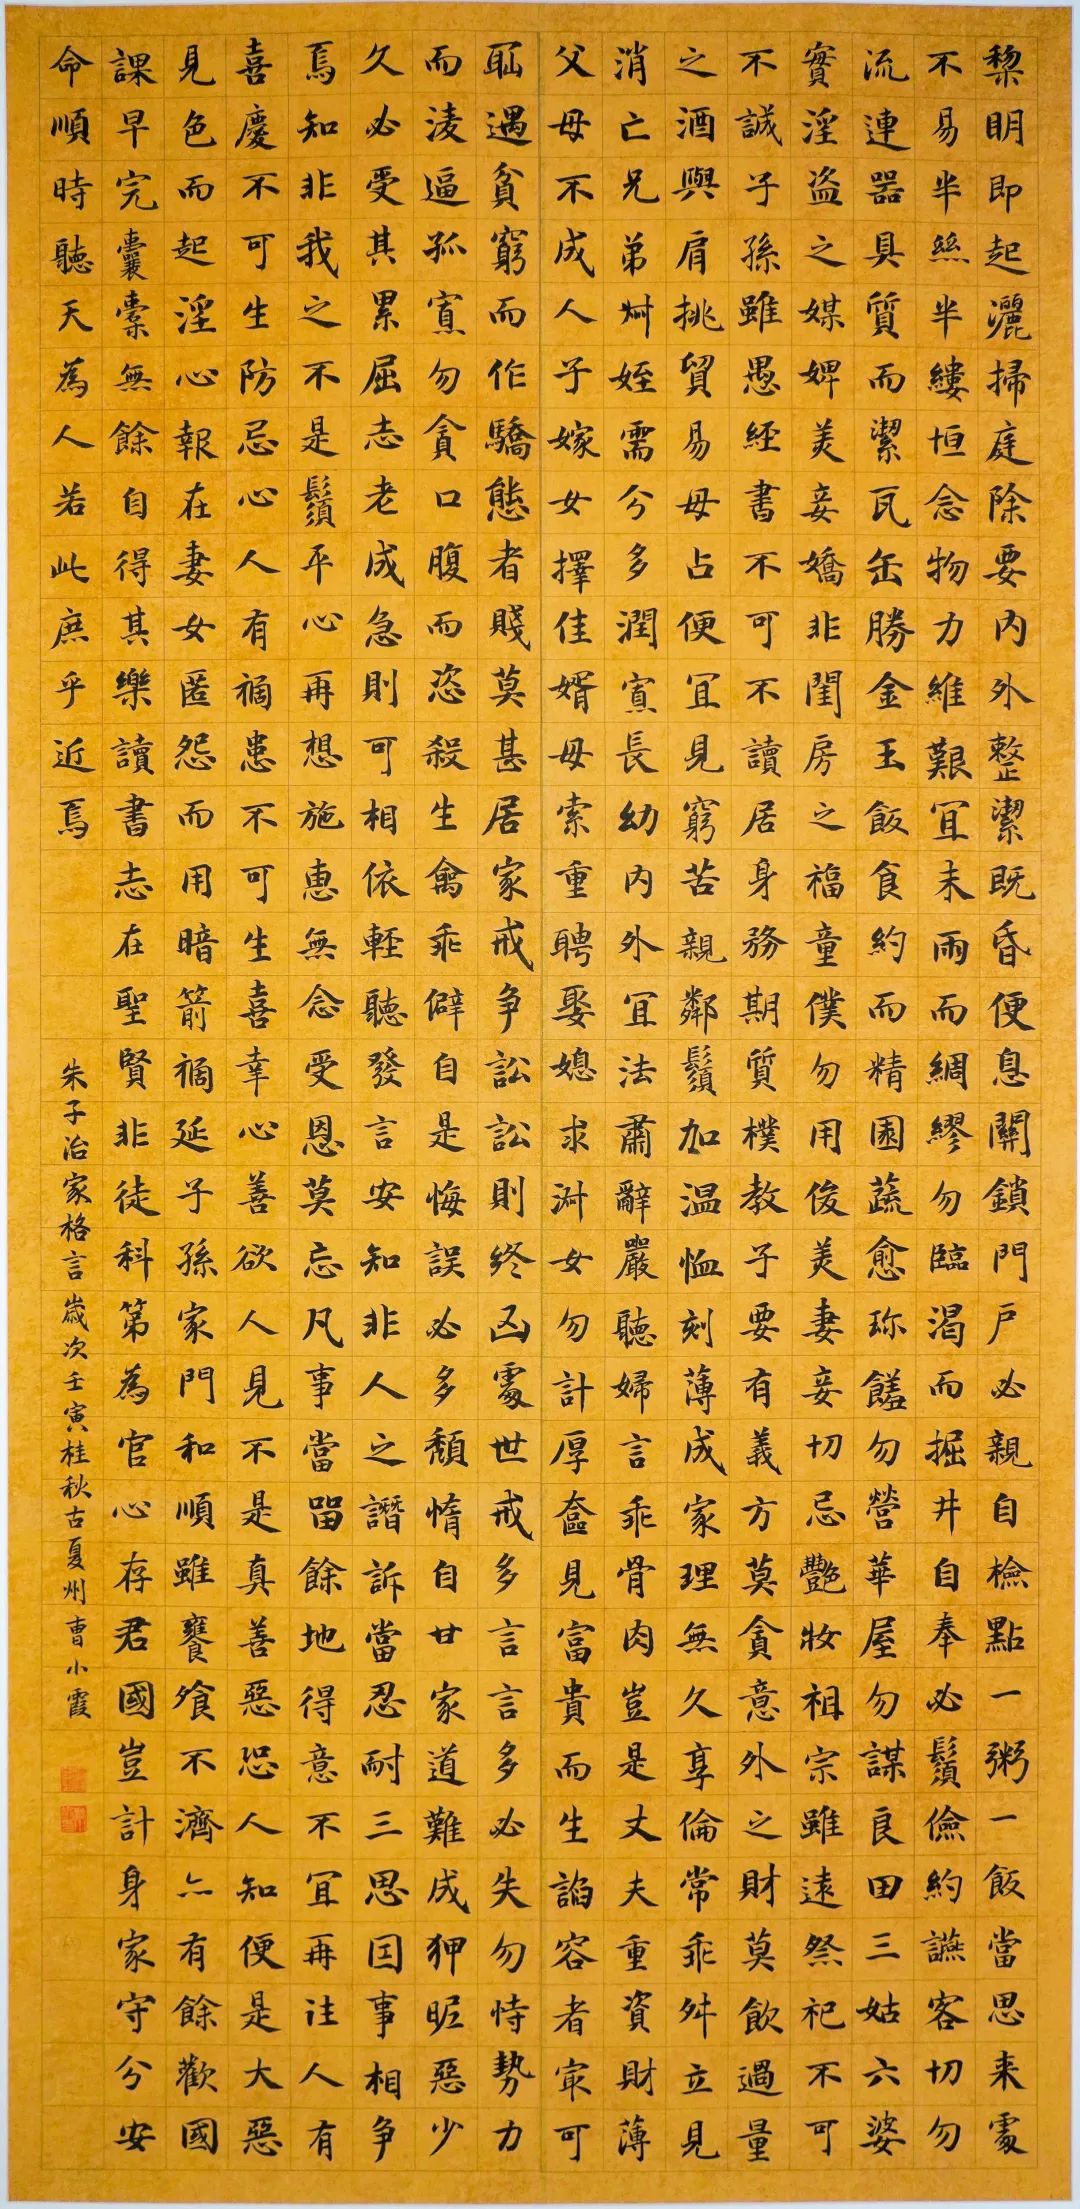 黎明即起灑掃庭除要內外整潔既昏便息關鎖門戶必親自檢點一粥一飯當思來處
不易半絲半縷恒念物力維艱宜未雨而綢繆勿臨渴而掘井自奉必鬚儉約讌客切勿
流連器具質而潔瓦缶勝金玉飯食約而精園蔬愈珍饈勿營華屋勿謀良田三姑六婆
實淫盜之媒婢美妾嬌非閨房之福童僕勿用俊美妻妾切忌艷妝祖宗雖遠祭祀不可
不誠子孫雖愚經書不可不讀居身務期質樸教子要有義方莫貪意外之財莫飲過量
之酒與肩挑貿易毋占便宜見窮苦親鄰鬚加温恤刻薄成家理無久享倫常乖舛立見
消亡兄弟叔姪需分多潤寡長幼內外宜法肅辭嚴聽婦言乖骨肉豈是丈夫重資財薄
父母不成人子嫁女擇佳婿毋索重聘娶媳求淑女勿計厚奩見富貴而生諂容者最可
恥遇貧窮而作驕態者賤莫甚居家戒爭訟訟則終凶處世戒多言言多必失勿恃勢力
而淩逼孤寡勿貪口腹而恣殺生禽乖僻自是悔誤必多頹惰自甘家道難成狎昵惡少
久必受其累屈志老成急則可相依輕聽發言安知非人之譖訴當忍耐三思因事相爭
焉知非我之不是鬚平心再想施惠無念受恩莫忘凡事當留餘地得意不宜再往人有
喜慶不可生防忌心人有禍患不可生喜幸心善欲人見不是真善惡恐人知便是大惡
見色而起淫心報在妻女匿怨而用暗箭禍延子孫家門和順雖饔飧不濟亦有餘歡國
課早完囊橐無餘自得其樂讀書志在聖賢非徒科第為官心存君國豈計身家守分安
命順時聽天為人若此庶乎近焉
朱子治家格言歲次壬寅桂秋古夏州曹小霞